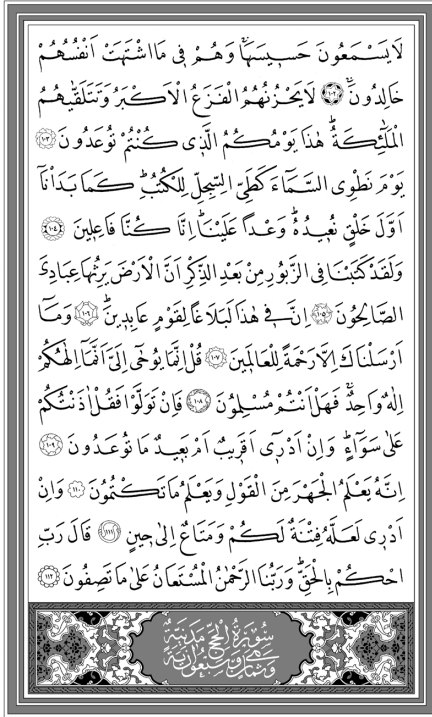 لَا يَسْمَعُونَ حَسِيسَهَاۚ وَهُمْ فِى مَا اشْتَهَتْ اَنْفُسُهُمْ
خَالِدُونَۚ ﴿١٠٢﴾ لَا يَحْزُنُهُمُ الْفَزَعُ الْاَكْبَرُ وَتَتَلَقّٰيهُمُ
الْمَلٰٓئِكَةُۜ هٰذَا يَوْمُكُمُ الَّذ۪ى كُنْتُمْ تُوعَدُونَ ﴿١٠٣﴾
يَوْمَ نَطْوِى السَّمَٓاءَ كَطَىِّ السِّجِلِّ لِلْكُتُبِۜ كَمَا بَدَأْنَٓا
اَوَّلَ خَلْقٍ نُع۪يدُهُۜ وَعْدًا عَلَيْنَاۜ اِنَّا كُنَّا فَاعِل۪ينَ ﴿١٠٤﴾
وَلَقَدْ كَتَبْنَا فِى الزَّبُورِ مِنْ بَعْدِ الذِّكْرِ اَنَّ الْاَرْضَ يَرِثُهَا عِبَادِىَ
الصَّالِحُونَ ﴿١٠٥﴾ اِنَّ ف۪ى هٰذَا لَبَلَاغًا لِقَوْمٍ عَابِد۪ينَۜ ﴿١٠٦﴾ وَمَٓا
اَرْسَلْنَاكَ اِلَّا رَحْمَةً لِلْعَالَم۪ينَ ﴿١٠٧﴾ قُلْ اِنَّمَا يُوحٰٓى اِلَىَّ اَنَّمَٓا اِلٰهُكُمْ
اِلٰهٌ وَاحِدٌۚ فَهَلْ اَنْتُمْ مُسْلِمُونَ ﴿١٠٨﴾ فَاِنْ تَوَلَّوْا فَقُلْ اٰذَنْتُكُمْ
عَلٰى سَوَٓاءٍۜ وَاِنْ اَدْر۪ٓى اَقَر۪يبٌ اَمْ بَع۪يدٌ مَا تُوعَدُونَ ﴿١٠٩﴾
اِنَّهُ يَعْلَمُ الْجَهْرَ مِنَ الْقَوْلِ وَيَعْلَمُ مَا تَكْتُمُونَ ﴿١١٠﴾ وَاِنْ
اَدْر۪ى لَعَلَّهُ فِتْنَةٌ لَكُمْ وَمَتَاعٌ اِلٰى ح۪ينٍ ﴿١١١﴾ قَالَ رَبِّ
احْكُمْ بِالْحَقِّۜ وَرَبُّنَا الرَّحْمٰنُ الْمُسْتَعَانُ عَلٰى مَا تَصِفُونَ ﴿١١٢﴾
سُورَةُ الْحَجِّ مَدَنِيَّةٌ
وَهِىَ ثَمَانٌ وَسَبْعُونَ اٰيَةً